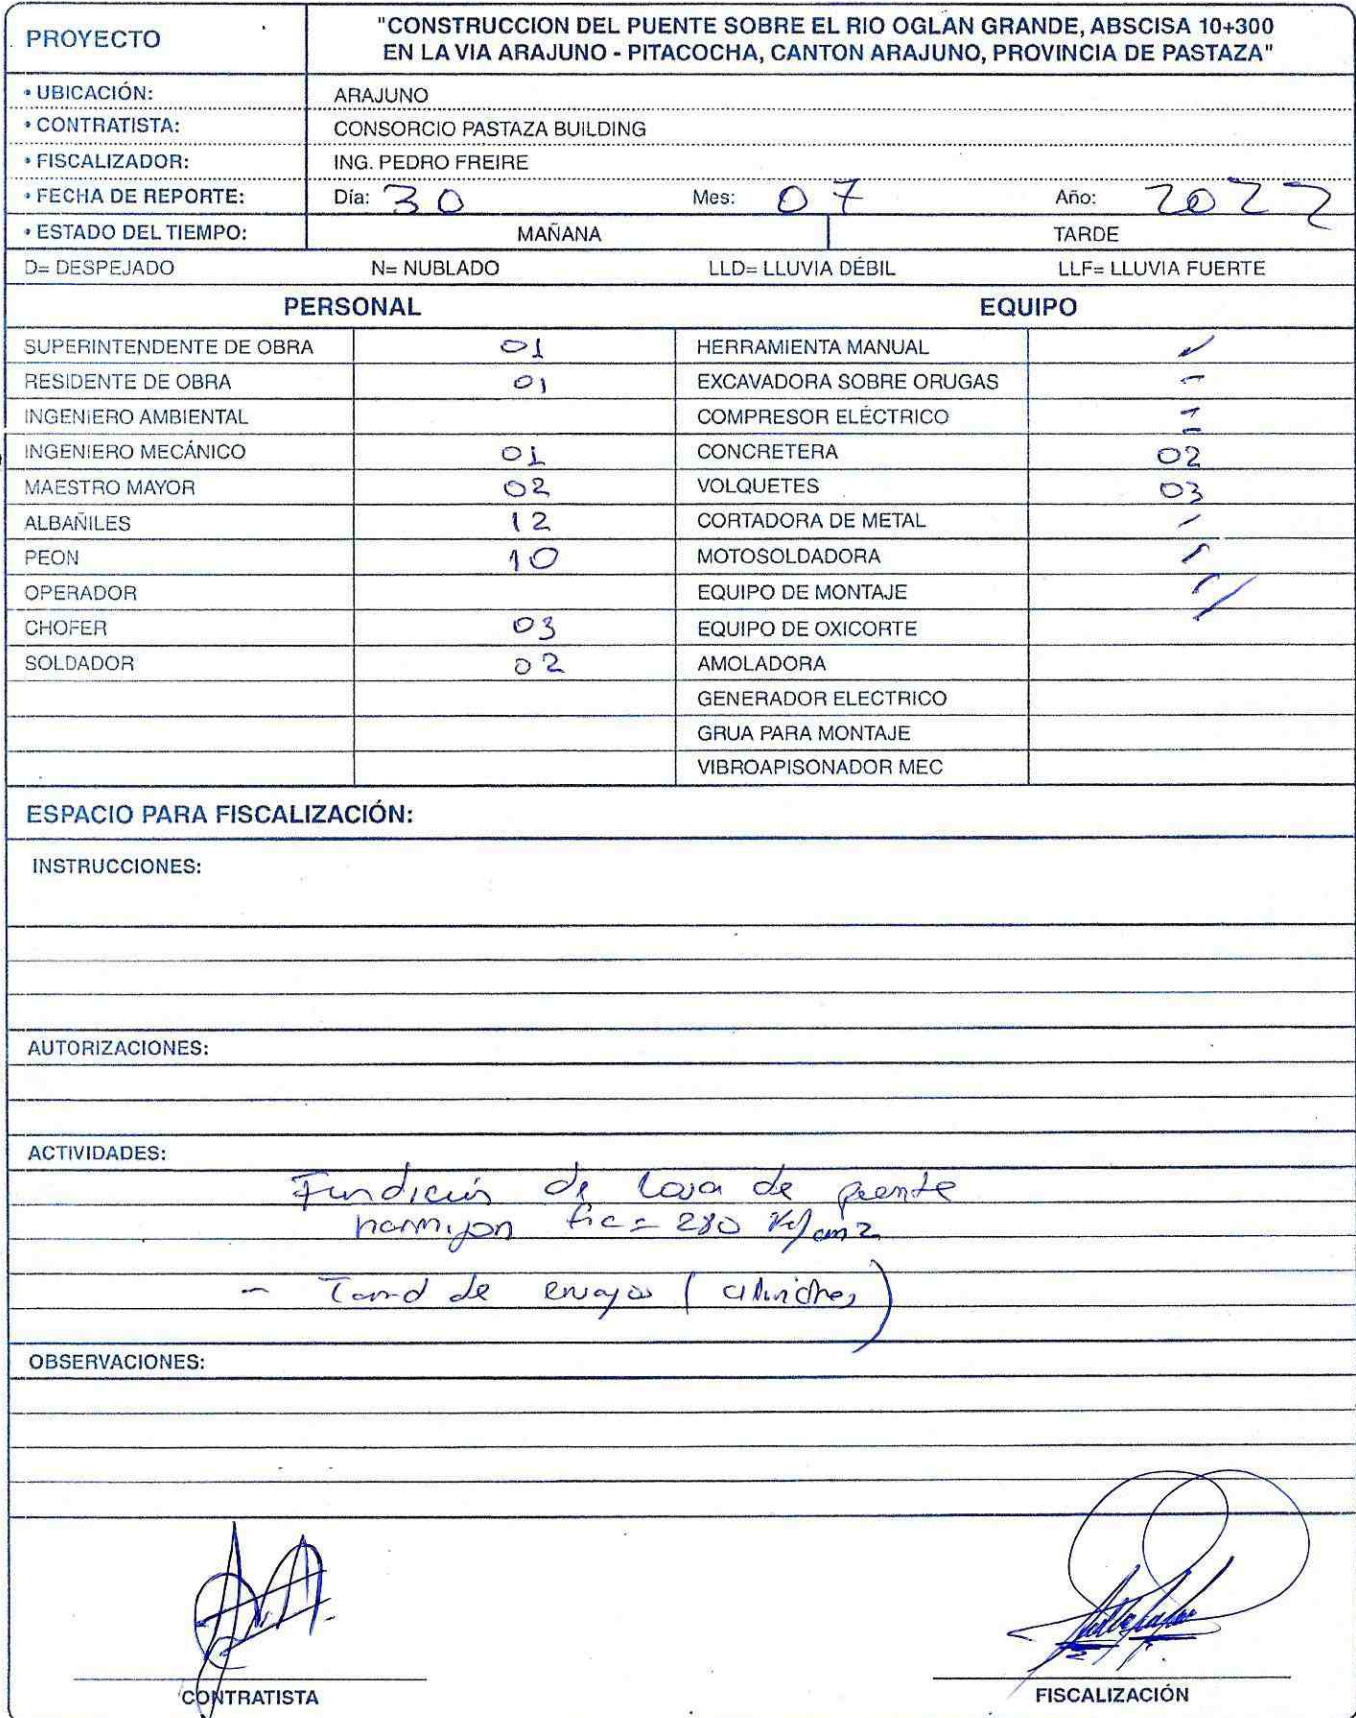 PROYECTO
"CONSTRUCCION DEL PUENTE SOBRE EL RIO OGLAN GRANDE, ABSCISA 10+300
EN LA VIA ARAJUNO - PITACOCHA, CANTON ARAJUNO, PROVINCIA DE PASTAZA"
• UBICACIÓN: ARAJUNO
• CONTRATISTA: CONSORCIO PASTAZA BUILDING
• FISCALIZADOR: ING. PEDRO FREIRE
• FECHA DE REPORTE: Día: 30 Mes: 07 Año: 2022
• ESTADO DEL TIEMPO: MAÑANA TARDE
D= DESPEJADO N= NUBLADO LLD= LLUVIA DÉBIL LLF= LLUVIA FUERTE
PERSONAL EQUIPO
SUPERINTENDENTE DE OBRA 01 HERRAMIENTA MANUAL
RESIDENTE DE OBRA 01 EXCAVADORA SOBRE ORUGAS
INGENIERO AMBIENTAL COMPRESOR ELÉCTRICO
INGENIERO MECÁNICO 01 CONCRETERA 02
MAESTRO MAYOR 02 VOLQUETES 03
ALBAÑILES 12 CORTADORA DE METAL
PEON 10 MOTOSOLDADORA
OPERADOR EQUIPO DE MONTAJE
CHOFER 03 EQUIPO DE OXICORTE
SOLDADOR 02 AMOLADORA
GENERADOR ELECTRICO
GRUA PARA MONTAJE
VIBROAPISONADOR MEC
ESPACIO PARA FISCALIZACIÓN:
INSTRUCCIONES:
AUTORIZACIONES:
ACTIVIDADES:
Fundición de losa de puente
hormigon f'c = 280 Kg/cm2
- de ensayos (cilindros)
OBSERVACIONES:
CONTRATISTA FISCALIZACIÓN